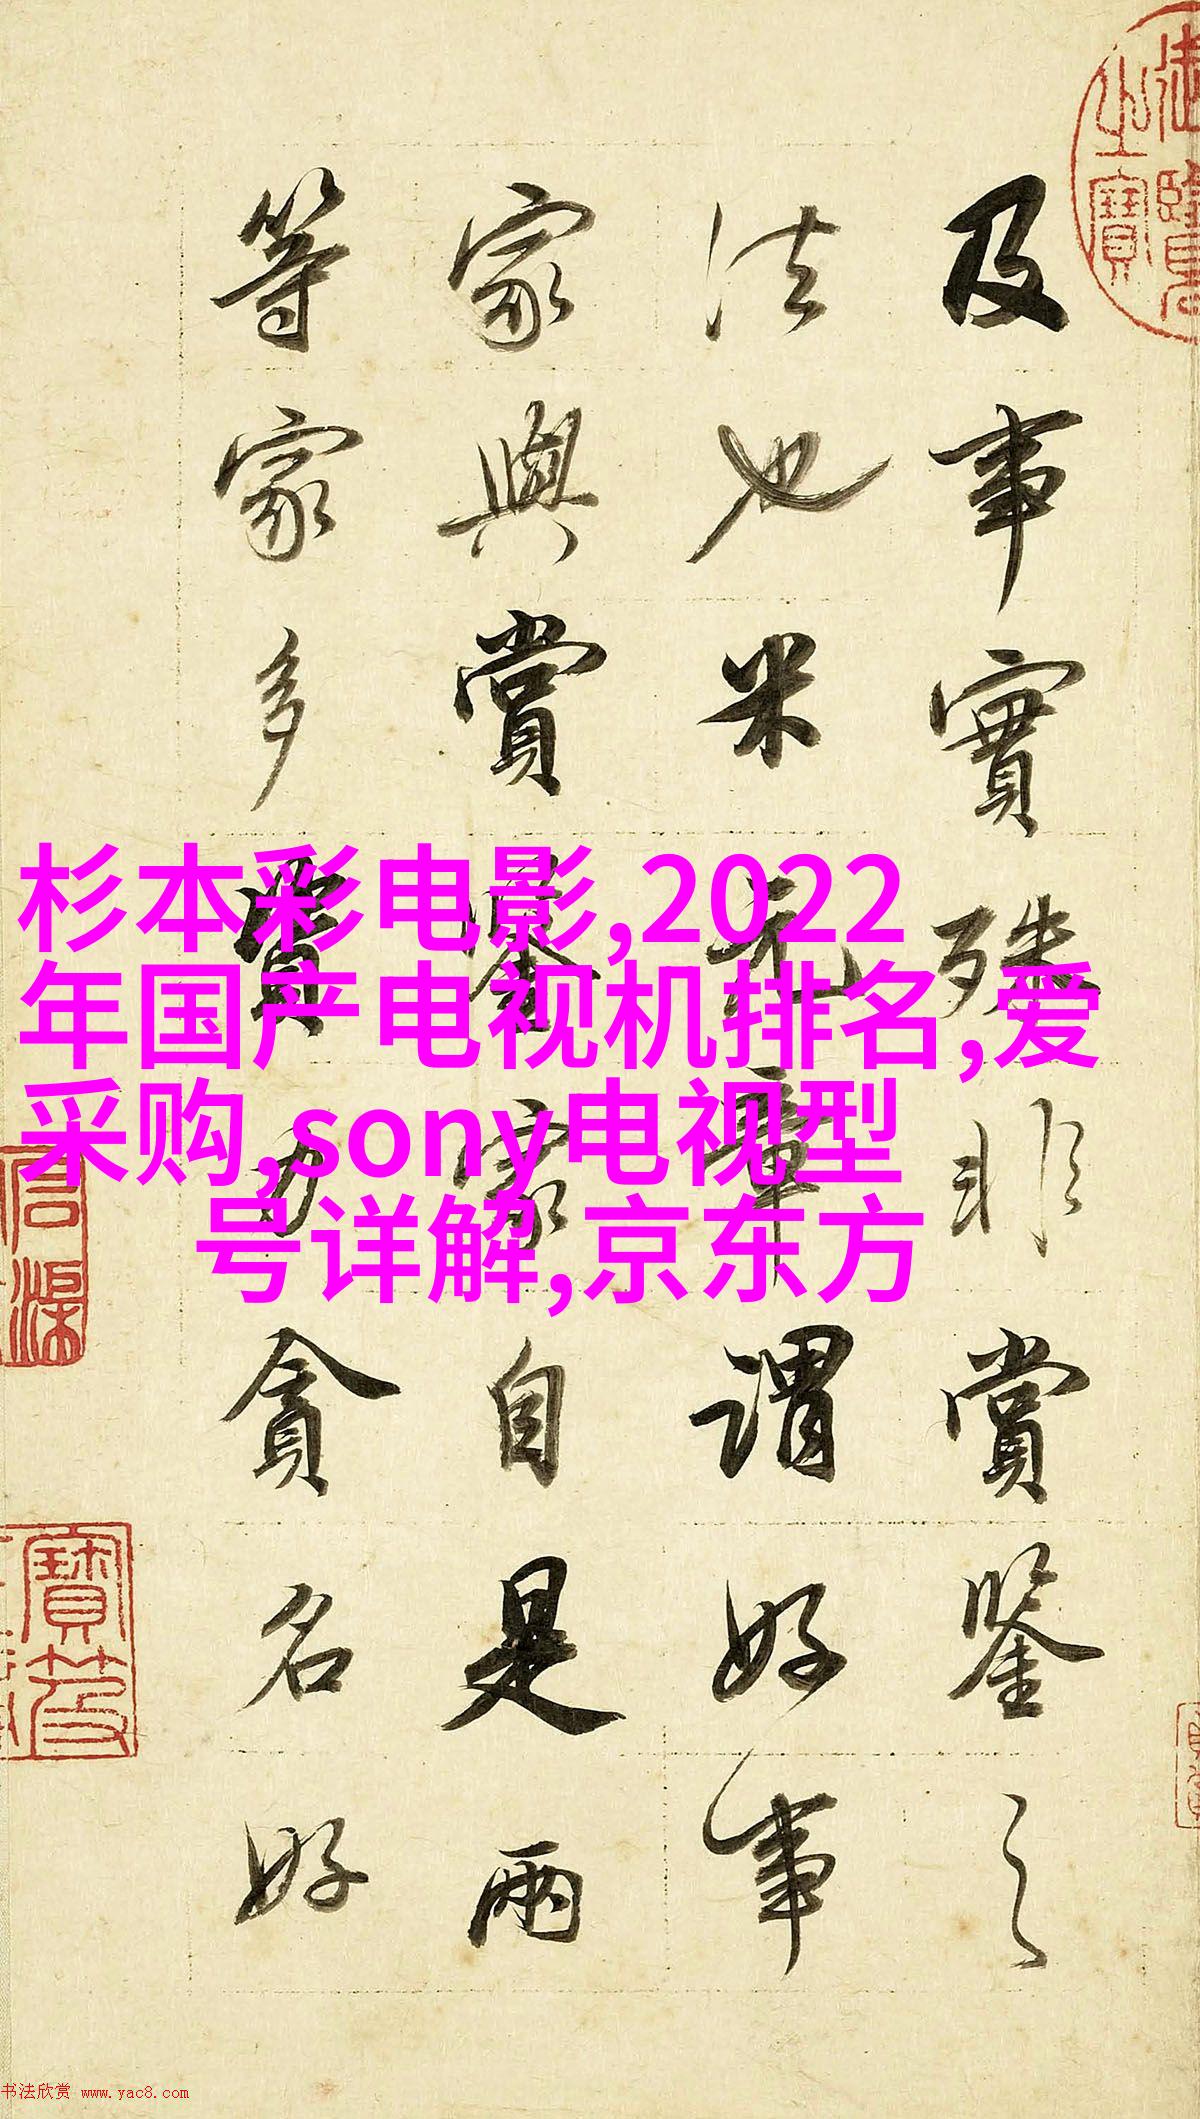 及事實殊非賞鑒之
法也米元章謂好事
家與賞鑒家自是兩
等家多資力貪名好
杉本彩电影,2022
年国产电视机排名,爱
采购,sony电视型
号详解,京东方
书法欣赏 www.yac8.com